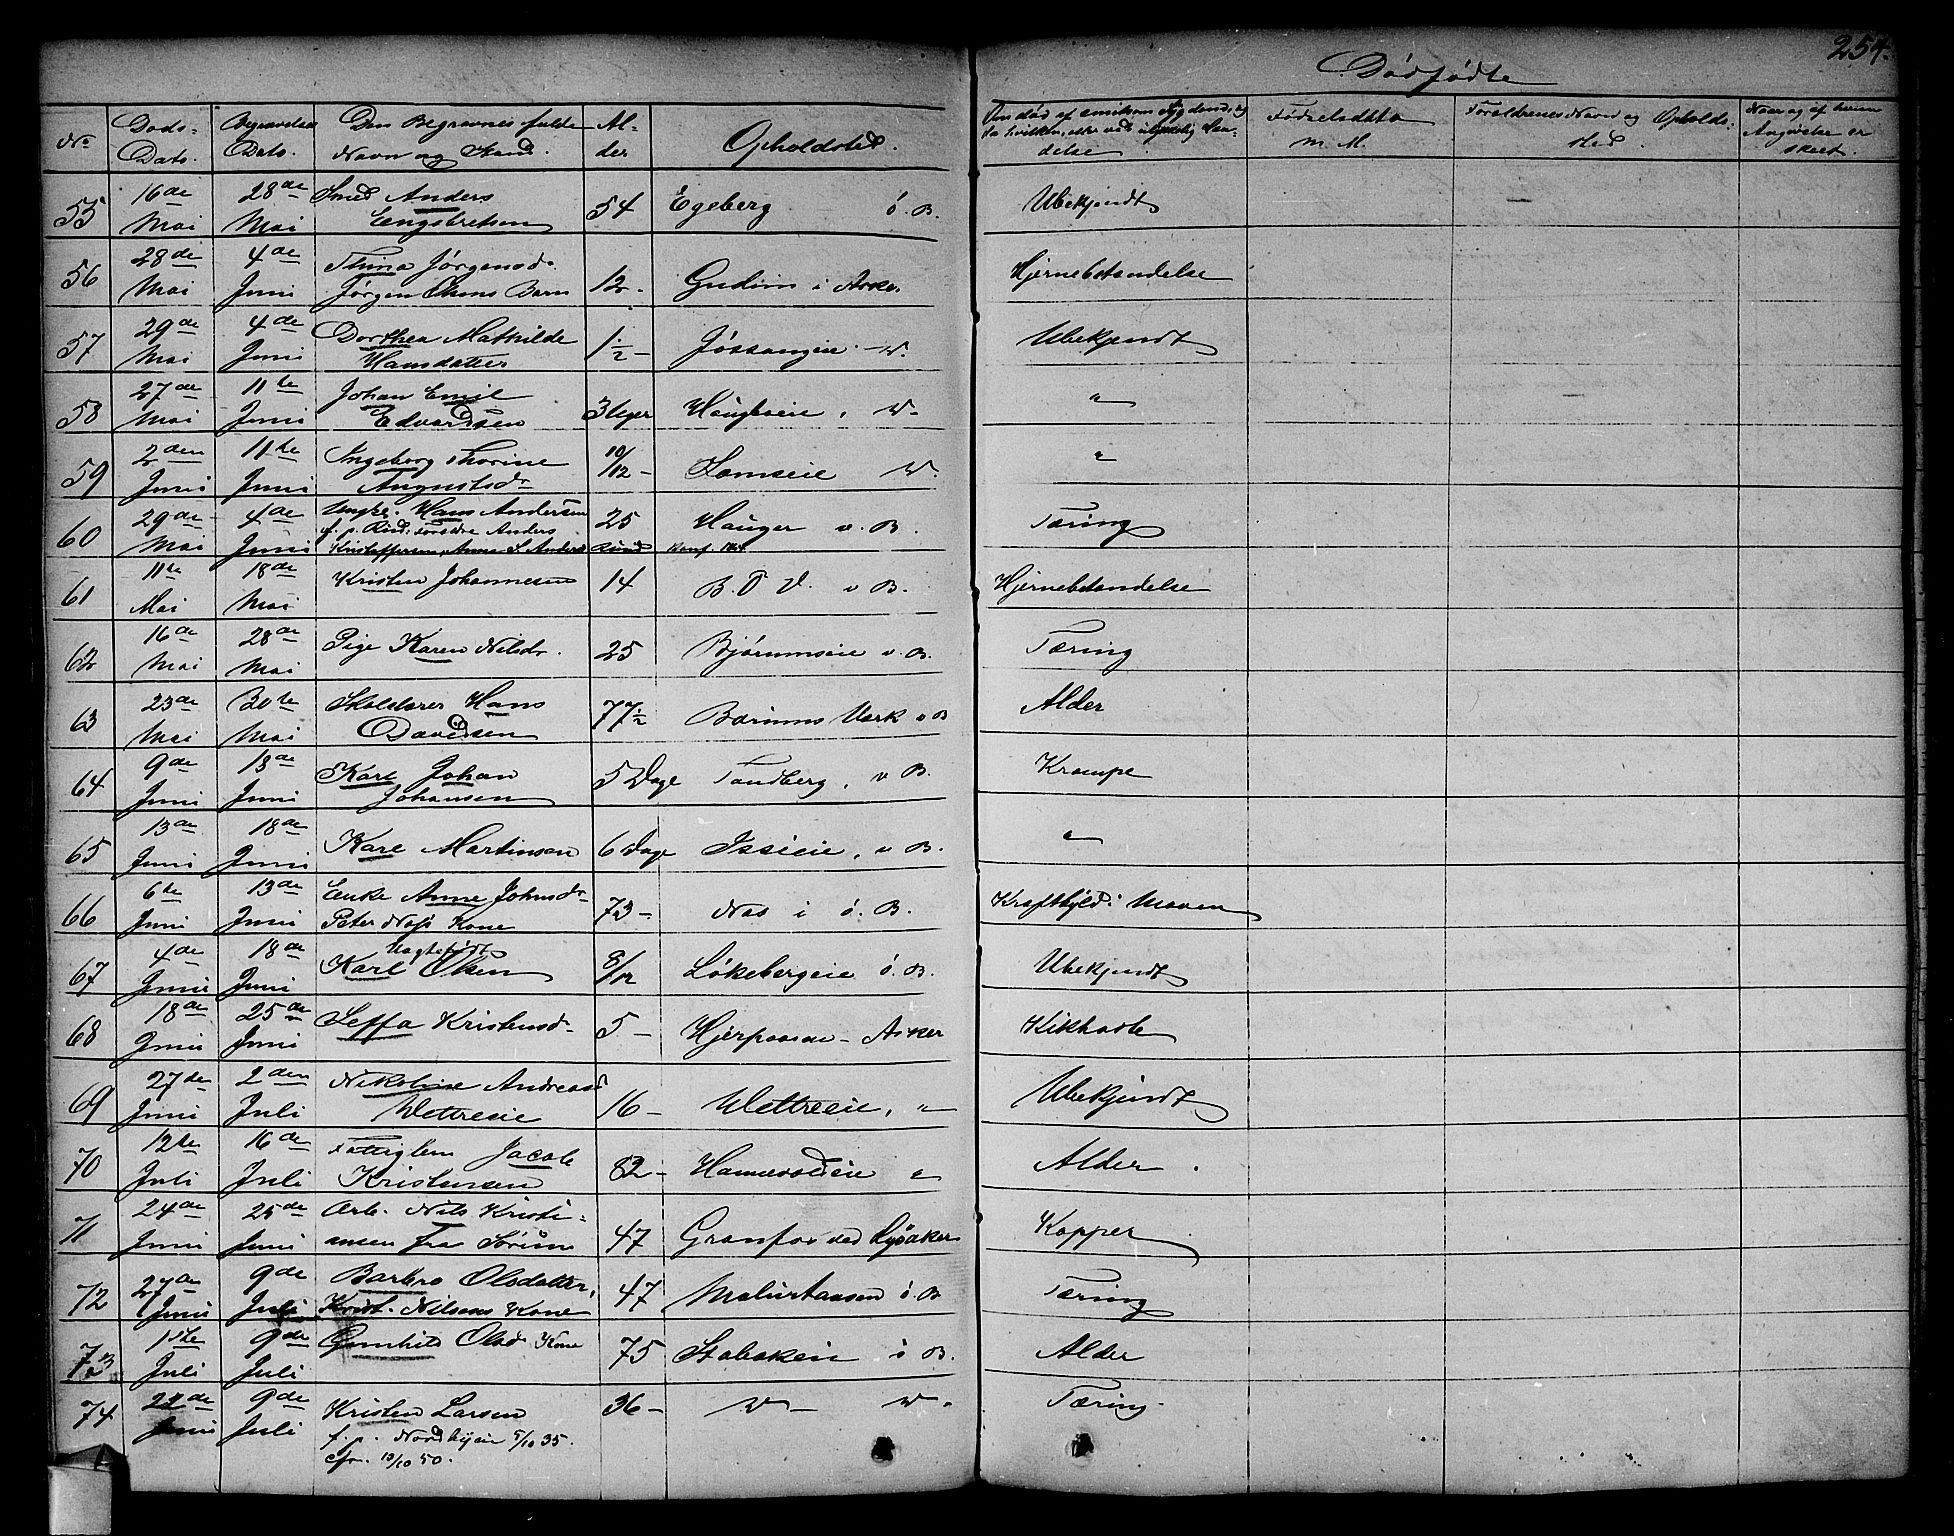 254.
Dødfødte
No
Døds-
Dato.
Begravelses
Dato.
Den Begravnes fulde
Navn og Stand.
Al-
der
Opholdsted.
Om død af smitsom Sygdom, og
da hvilken, eller ved ulykkelig Hæn-
delse
Fødselsdatto
m. M.
Forældrenes Navn og Opholds-
sted.
Naar og af hvem
Angivelse er
skeet.
55 16de Mai 28de Mai Smed Anders
Engebretsen 54 Egeberg ø. B. Ubekjendt
56 28de Mai 4de Juni Thina Jørgensd.
Jørgen Barn 12 - Gudim i Aske. Hjernebetændelse
57 29de Mai 4de Juni Dorthea Mathilde
Hansdatter 1½ - Ubekjendt
58 27de Mai 11te Juni Johan Emil
Edvardsen 3 Uger „
59 2den Juni 11te Juni Ingeborg Thorine
Augustsdr 10/12 - „
60 29de Mai 4de Juni Ungk. Hans Andersen
f. p. Anders
Kristoffersen, Anne Anders 25 Hauger v. B. Tæring
61 11te Mai 18de Mai Kristen Johannesen 14 B. V. v B. Hjernebetændelse
62 16de Mai 28de Mai Pige Karen Nilsdr. 25 Bjørumseie v. B. Tæring
63 23de Mai 30te Mai Skolelærer Hans
Davidsen 77½ Bærums Verk v B Alder
64 9de Juni 13de Juni Karl Johan
Johansen 5 Dage Tandberg, v B. Krampe
65 13de Juni 18de Juni Karl Martinsen 6 Dage Issieie, v B. „
66 6te Juni 13de Juni Enke Anne Johnsdr
Peter Næss Kone 73 - Næs i ø. B. Kræftbyld i Maven
67 4de Juni 18de Juni Uægtefødt
Karl Olsen 8/12 Løkebergeie ø. B. Ubekjendt
68 18de Juni 25de Juni Seffa Kristensd. 5 - Asker Kikhoste
69 27de Juni 2den Juli Nikoline Andreasd
Wettreeie 16 - Wettreeie, „ Ubekjendt
70 12te Juli 16de Juli Fattiglem Jacob
Kristensen 82 - „ Alder.
71 24de Juni 25de Juni Arb. Nils Kristi-
ansen fra Sørum 47 Granfos ved Lysaker Kopper
72 27de Juni 9de Juli Barbro Olsdatter,
Krist. Nilsens Kone 47 ø. B Tæring
73 1ste Juli 9de Juli Gunhild Olsd Kone 75 Stabækeie ø B. Alder
74 22de Juni 9de Juli Kristen Larsen
f. p. 5/10 35.
cfr. 13/10 50. 36 - Tæring.